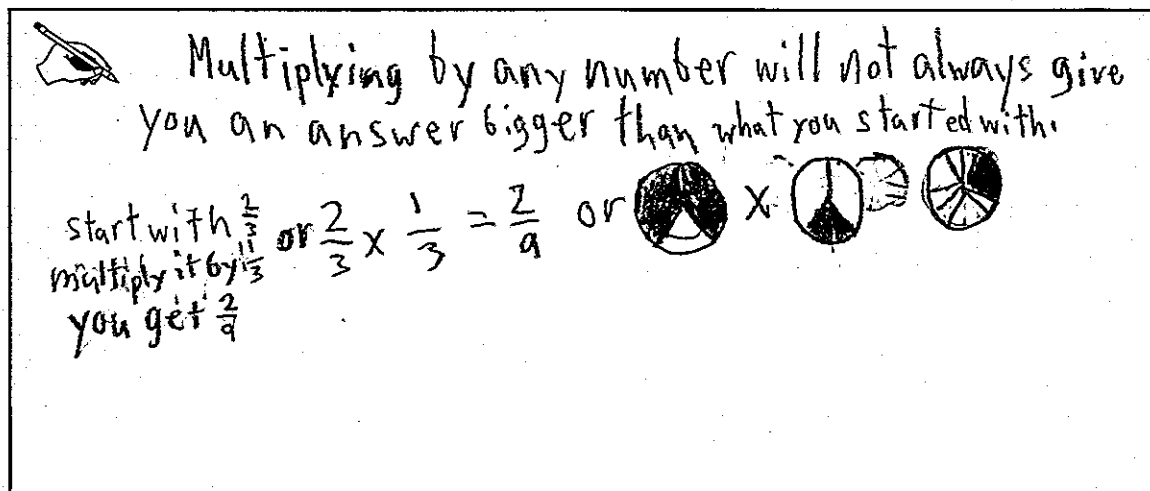 Multiplying by any number will not always give
you an answer bigger than what you started with.
start with 2/3 or 2/3 x 1/3 = 2/9 or x
multiply it by 1/3
you get 2/9